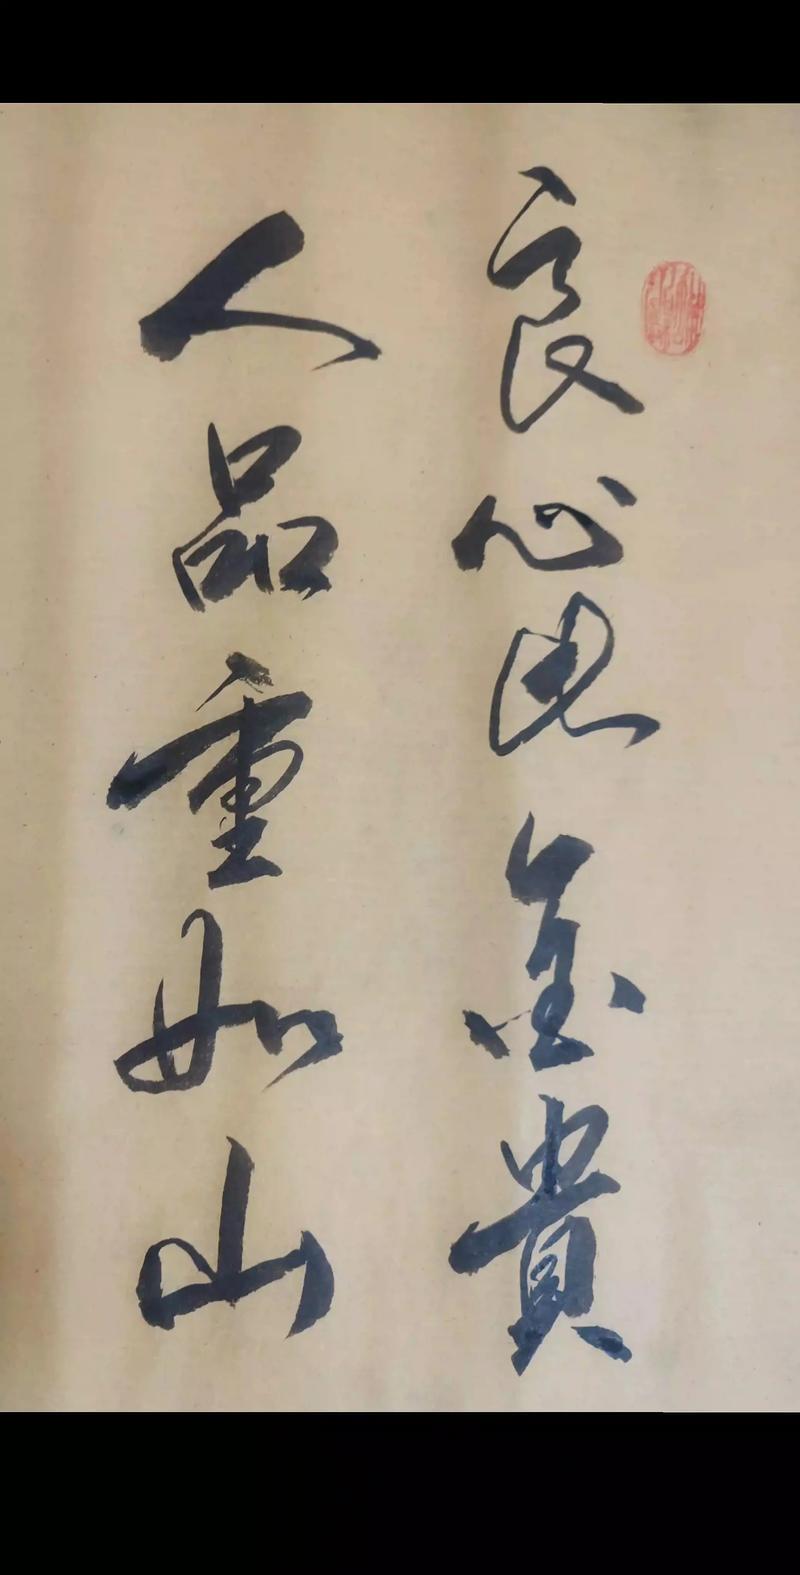 良心比金貴
人品重如山